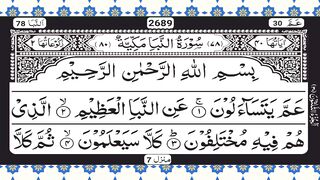 النبا ٧٨
2689
عم ٣٠
اٰیاتها ٤٠ (٧٨) سُوْرَةُ النَّبَاِ مَكِّيَّةٌ (٨٠) رُكُوْعَاتُهَا ٢
بِسْمِ اللّٰهِ الرَّحْمٰنِ الرَّحِيْمِ
عَمَّ يَتَسَآءَلُوْنَ ۝١ عَنِ النَّبَاِ الْعَظِيْمِ ۝٢ الَّذِيْ
هُمْ فِيْهِ مُخْتَلِفُوْنَ ۝٣ كَلَّا سَيَعْلَمُوْنَ ۝٤ ثُمَّ كَلَّا
منزل 7